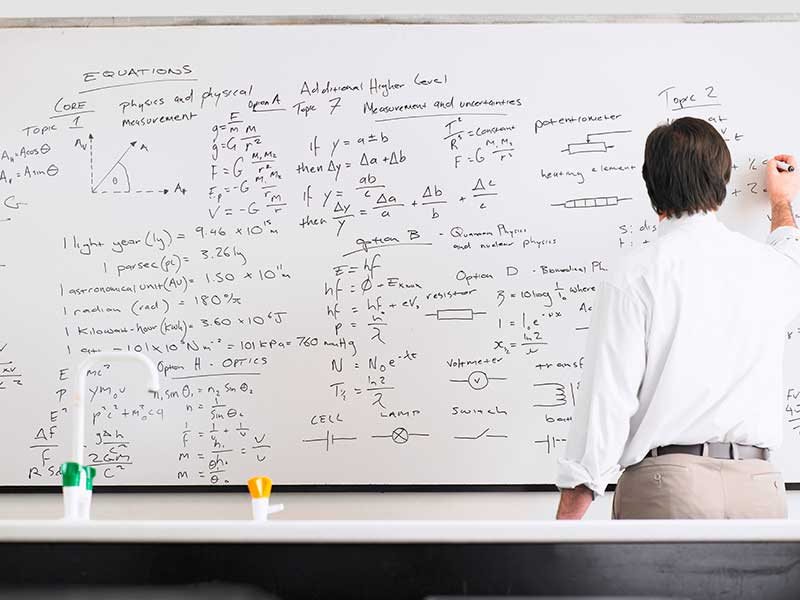 EQUATIONS
CORE
Topic 1
physics and physical
measurement
A_H = A cos θ
A_V = A sin θ
A_V
A
θ
Option A
g = F/m
g = G M/r²
F = G M₁M₂/r²
V = -G M/r
Additional Higher Level
Topic 7 Measurement and uncertainties
if y = a ± b
then Δy = Δa + Δb
if y = ab/c
then Δy/y = Δa/a + Δb/b + Δc/c
T²/R³ = constant
F = G M₁M₂/r²
potentiometer
heating element
Topic 2
1 light year (ly) = 9.46 × 10¹⁵ m
1 parsec (pc) = 3.26 ly
1 astronomical unit (AU) = 1.50 × 10¹¹ m
1 radian (rad) = 180°/π
1 Kilowatt-hour (kWh) = 3.60 × 10⁶ J
1 at = 1.01 × 10⁵ N m⁻² = 101 kPa = 760 mm Hg
option B - Quantum Physics
and nuclear physics
E = hf
hf = hf₀ + eV₀
p = h/λ
N = N₀e^-λt
T½ = ln2/λ
Option D - Biomedical Ph
where
resistor
voltmeter
V
transf
E mc²
Option H - OPTICS
n₁ sin θ₁ = n₂ sin θ₂
p²c² + m₀²c⁴
Δf/f
gΔh/c²
2GM/c²
CELL
LAMP
Switch
bat